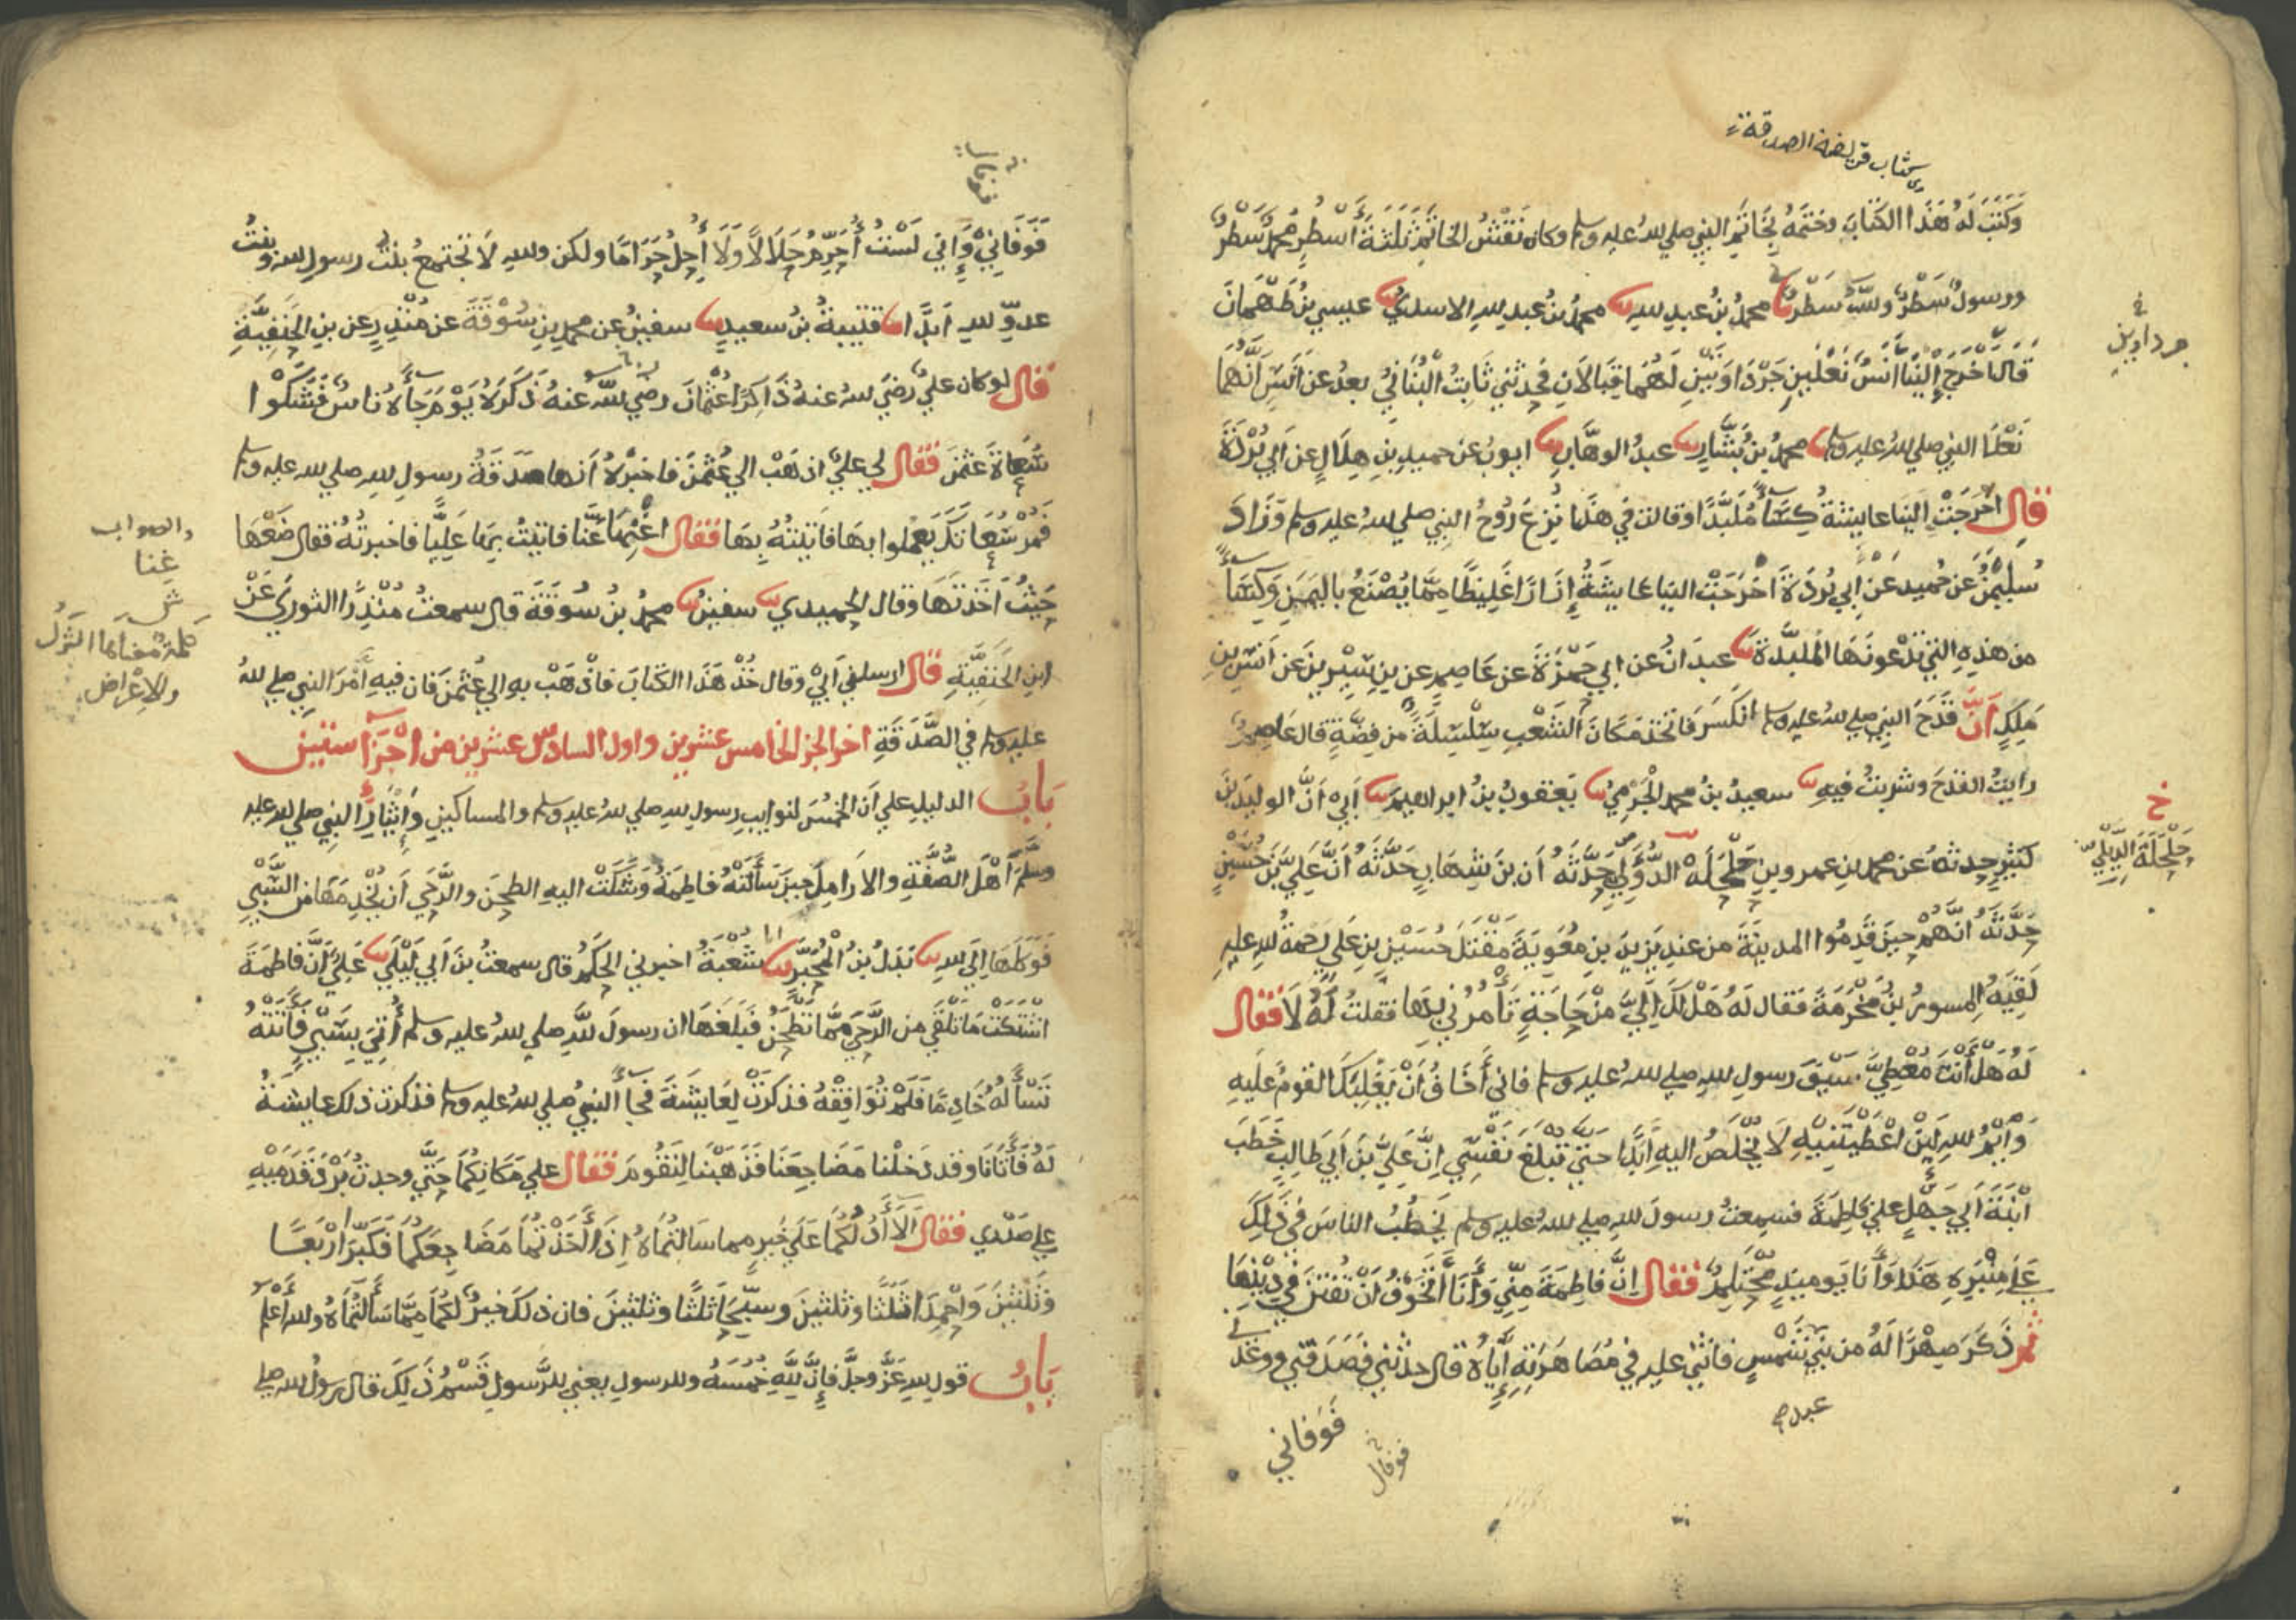 كتاب فريضة الصدقة
وَكَتَبَ لَهُ هَذَا الكتَابَ وختمَهُ بِخَاتَمِ النبيِ صلي لله عليه وسلم وكان نَقْشُ الخاتَمِ ثَلثَةَ أَسْطُرٍ محمدٌ سَطْرٌ
ورسولُ سَطْرٌ وللَّه سَطْرٌ نا محمدُ بنُ عبدِ للهِ نا محمدُ بنُ عبدِ للهِ الاسديُّ نا عيسي بنُ طَهْمانَ
قَالَ اخْرَجَ إِلَيْنَا أَنَسٌ نَعْلَينِ جَرْدَاوَيْنِ لَهُمَا قِبَالَانِ فحدثني ثَابِتُ الْبُنَانيُّ بعدُ عن أَنَسٍ أَنَّهُمَا
في
جرداوينِ
نَعْلَا النبيِ صلي للهُ عليه وسلم نا محمدُ بنُ بَشَّارٍ نا عبدُ الوهَّابِ نا ايوبُ عن حميدِ بنِ هِلَالٍ عن ابي بُرْدَةَ
قال اخْرَجَتْ إلينا عايشةُ كِسَاءً مُلَبَّدًا وقالت في هذَا نُزِعَ رُوحُ النبيِ صلي للهُ عليه وسلم وَزَادَ
سُلَيْمنُ عن حُمَيدٍ عَنْ أَبي بُرْدَةَ اخْرَجَتْ الينَا عَايِشَةُ إِزَارًا غَلِيظًا مِمَّا يُصْنَعُ باليَمَنِ وَكِسَاءً
من هذهِ التي تَدْعونَهَا الْمُلَبَّدَةَ نا عبدَانُ عن ابي حَمْزَةَ عن عَاصِمٍ عن بنِ سِيْرِينَ عن انَسِ بنِ
مَلِكٍ أَنَّ قَدَحَ النبيِ صلي للهُ عليه وسلم انكَسَرَ فَاتخذ مَكَانَ الشَّعْبِ سِلْسِلَةً من فِضَّةٍ قال عَاصِمٌ
رايتُ القدَحَ وشربتُ فيهِ نا سعيدُ بنُ محمدٍ الْجَرْميُّ نا يَعقوبُ بنُ ابراهيمَ نا أَبي أَنَّ الوليدَ بنَ
كثيرٍ حدثه عن محمدِ بنِ عمرو بنِ حَلْحَلَهْ الدُّؤَلِيِّ حَدَّثَهُ أن بنَ شِهَابٍ حَدَّثَهُ أَنَّ عَلِيَّ بْنَ حُسَيْنٍ
خ
حَلْحَلَةَ الدِّيْلِيِّ
حَدَّثَهُ أَنَّهُمْ حِينَ قَدِمُوا المدينَةَ من عندِ يَزِيدَ بنِ مُعَويَةَ مَقْتَلَ حُسَيْنِ بنِ عَلي رَحمةُ للهِ عليهِ
لَقِيَهُ المِسورُ بنُ مَخْرَمَةَ فَقال لَهُ هَلْ لَكَ إِلَيَّ مِنْ حَاجَةٍ تَأْمُرُني بِهَا فَقلتُ لَهُ لَا فقال
لَهُ هَلْ أَنْتَ مُعْطِيَّ سَيْفَ رسولِ للهِ صلي للهُ عليه وسلم فاني أَخَافُ أَنْ يَغْلِبَكَ القومُ عَلَيهِ
وَايْمُ للهِ لَئِنْ اعْطَيْتَنِيْهِ لَا يُخْلَصُ اليهِ أَبَدًا حَتي تَبْلُغَ نَفْسِي اِنَّ عَلِيَّ بنَ أَبي طَالِبٍ خَطَبَ
ابْنَةَ أَبي جَهْلٍ علي فَاطِمَةَ فسَمِعتُ رسولَ للهِ صلي للهُ عليه وسلم يَخْطُبُ الناسَ في ذَلِكَ
عَلَي مِنْبَرِهِ هَذَا وَأَنَا يَوميذٍ مُحْتَلِمٌ فقال اِنَّ فاطِمَةَ مِنِّي وَأَنَا أَتَخَوَّفُ أَنْ تُفْتَنَ في دِيْنِهَا
ثم ذَكَرَ صِهْرًا لَهُ من بَنِي شَمْسٍ فاثني عليه في مُصَاهَرَتِهِ إِيَّاهُ قال حدثني فَصَدَقني ووعَدَني
عبد صح
فَوَفَاني
فوفالي
فوفالي
فَوَفَانِيْ وَإِني لَسْتُ أُحَرِّمُ حَلَالًا وَلَا أُحِلُّ حَرَامًا ولكن وللهِ لَا تَجْتمعُ بنتُ رسولِ للهِ وبنتُ
عدوِّ للهِ أَبَدًا نا قتيبةُ بنُ سعيدٍ نا سفينُ عن محمدِ بنِ سُوْقَةَ عن مُنْذِرٍ عن بنِ الْحَنَفِيَّةِ
قال لو كان عليٌّ رضيَ للهُ عنهُ ذَاكِرًا عُثْمَانَ رضي للَّه عنهُ ذَكَرَهُ يَوْمَ جَاءَهُ نَاسٌ فَشَكَوْا
سُعَاةَ عثمَنَ فقال لي عليٌّ اذهَبْ الي عُثْمنَ فاخبرْهُ أَنها صَدَقةُ رسولِ للهِ صلي لله عليه وسلم
فَمُرْ سُعَاتَكَ يَعملوا بهَا فَاتَيْتُهُ بِهَا فقال اغْنِهَا عَنَّا فاتيتُ بِهَا عَلِيًّا فاخبرتُهُ فَقال ضَعْهَا
والصواب
عَنا
كلمة معناها الترك
والاعْراض
حَيْثُ أَخَذْتَهَا وقال الحميدي نا سفينُ نا محمدُ بنُ سُوقَةَ قال سمعتُ مُنْذِرًا الثوريَّ عَنْ
ابنِ الحَنَفِيَّةِ قال ارسلني أَبيْ وقال خُذْ هَذَا الكتابَ فَاذْهَبْ بهِ الي عُثْمَنَ فَان فيهِ أَمْرَ النبي صلي للهُ
عليه وسلم في الصَّدَقَةِ اخر الجز الخامس عشرين واول السادس عشرين من اجْزَاءِ ستين
بابُ الدليلِ علي أن الخمُسَ لنوايبِ رسولِ للهِ صلي للهُ عليه وسلم والمساكينِ وَإِيْثَارِ النبيِ صلي لله عليه
وسلَّمَ أَهْلَ الصُّفَّةِ والأَرَامِلَ حينَ سَأَلَتْهُ فاطِمَةُ وَشَكَتْ اليهِ الطحِنَ والرَّحَي أَن يُخْدِمَهَا من السَّبْيِ
فَوَكَلَهَا اِلَي للهِ نا بَدَلُ بنُ الْمُحَبَّرِ نا شُعْبَةُ اخبرني الْحَكَمُ قال سمعتُ بنَ أَبي لَيْلَي نا عَلِيٌّ أَنَّ فَاطِمَةَ
اشْتَكَتْ مَا تَلْقَي مِن الرَّحَي مِمَّا تَطْحَنُ فَبلَغَهَا ان رسولَ للَّهِ صلي للهُ عليه وسلم أُتِيَ بِسَبْيٍ فَأَتَتْهُ
تَسْأَلُهُ خَادِمًا فَلَمْ تُوَافِقْهُ فذكَرَتْ لِعَايِشَةَ فجَاءَ النبيُ صلي للهُ عليه وسلم فذكرت ذلك عايشةُ
لَهُ فَأَتَانَا وقد دَخلْنا مَضَاجِعَنَا فَذَهَبْنَا لِنَقُومَ فقال علي مَكَانِكُمَا حَتَّي وجدتُ بَرْدَ قَدَمَيْهِ
علي صَدْرِي فقال أَلَا أَدُلُّكُمَا عَلَي خَيرٍ مما سَالتُمَاهُ إِذَا أَخَذْتُمَا مَضَاجِعَكُمَا فَكَبِّرَا ارْبَعًا
وَثَلثِينَ وَاحْمِدَا ثَلَثًا وثلثينَ وسَبِّحَا ثلَثًا وثلثينَ فان ذلكَ خيرٌ لكُمَا مِمَّا سَأَلْتُمَاهُ وللهُ أَعْلَمُ
بابُ قولِ للهِ عَزَّ وجلَّ فإِنَّ لِلَّهِ خُمُسَهُ وللرسولِ يعني للرَّسولِ قَسْمُ ذَلِكَ قال رسولُ للهِ صلي